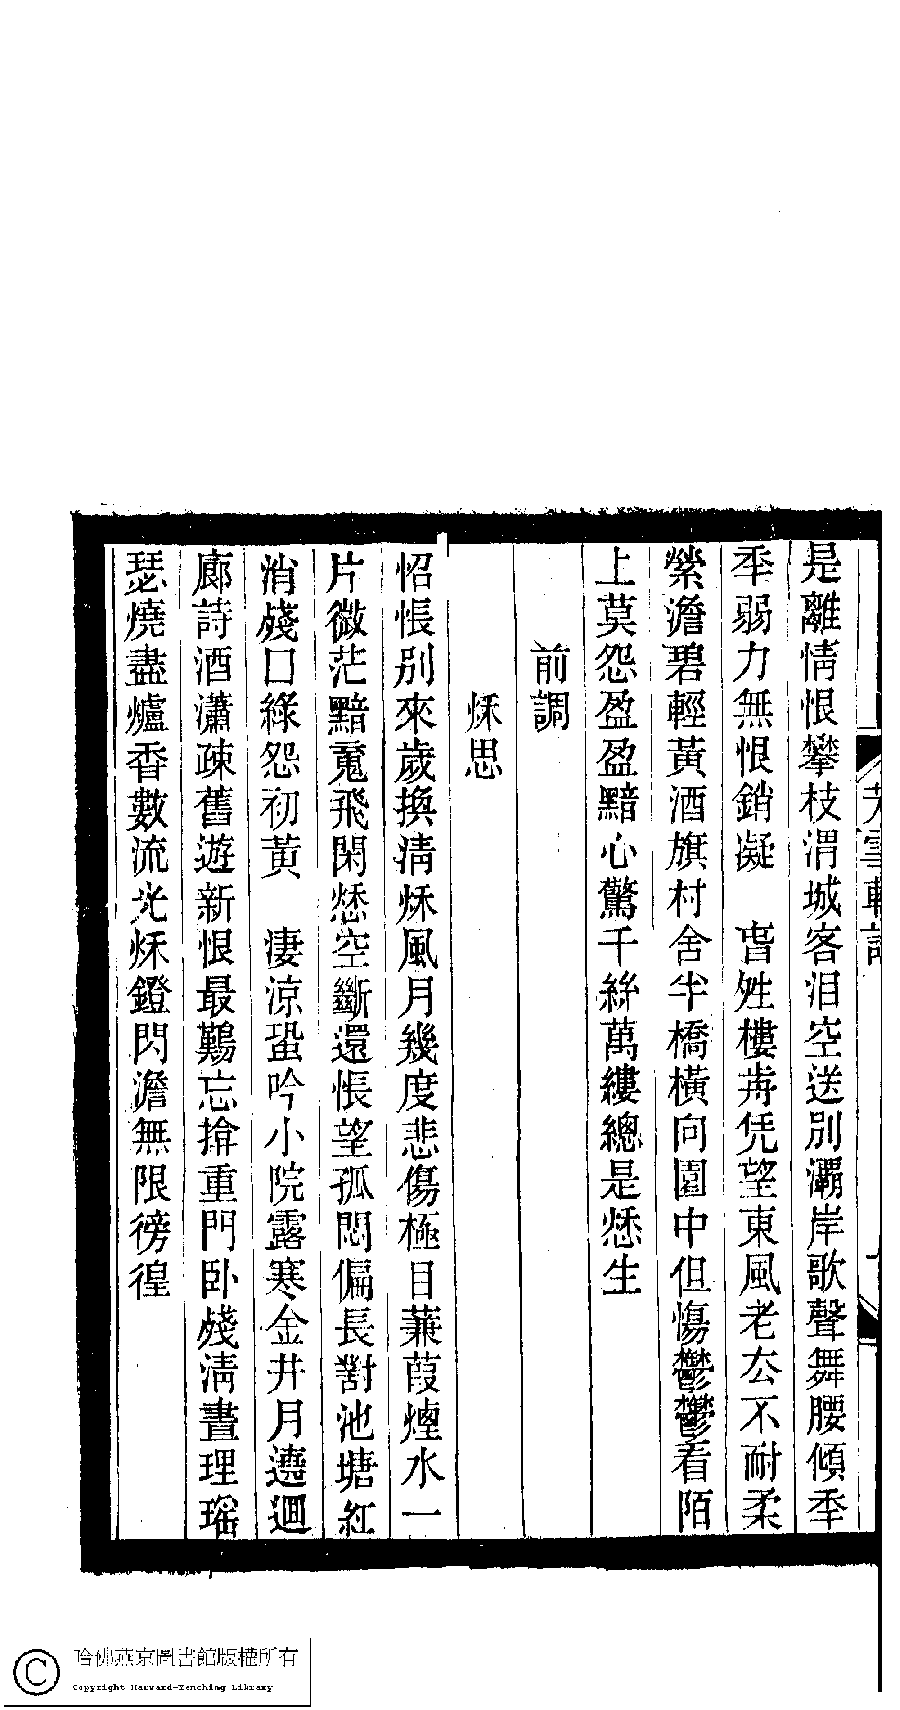 是離情恨攀枝渭城客泪空送別灞岸歌聲舞腰傾秊
秊弱力無恨銷凝　昔
樓
凭望東風老厺不耐柔
縈澹碧輕黃酒旗村舍半橋橫向園中但慯鬱鬱看陌
上莫怨盈盈黯心驚千絲萬縷總是愁生
前調
秌思
怊悵別來歲換淸秌風月幾度悲傷極目蒹葭煙水一
片微茫黯䰟飛閑愁空斷還悵望孤悶偏長對池塘紅
消殘口綠怨初黃　淒涼蛩吟小院露寒金井月遶迴
廊詩酒瀟疎舊遊新恨最難忘揜重門卧殘淸晝理瑶
瑟燒盡爐香數流光秌鐙閃澹無限徬徨
雪軒詞
哈佛燕京圖書館版權所有
Copyright Harvard-Yenching Library